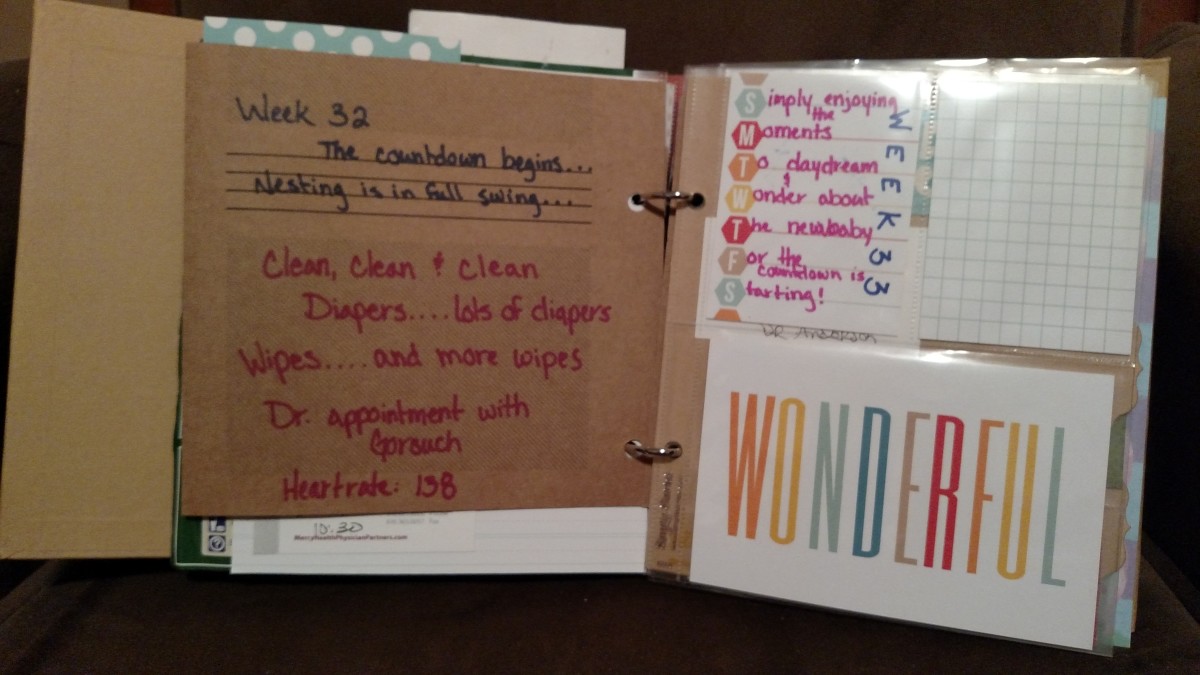 Week 32
The countdown begins...
Nesting is in full swing...
Clean, Clean & Clean
Diapers....lots of diapers
Wipes....and more wipes
Dr. appointment with
Gorsuch
Heartrate: 138
10:30
MercyHealthPhysicianPartners.com
Simply enjoying
the
Moments
To daydream
&
Wonder about
The new baby
For the
countdown is
Starting!
WEEK 33
DR. Anderson
WONDERFUL